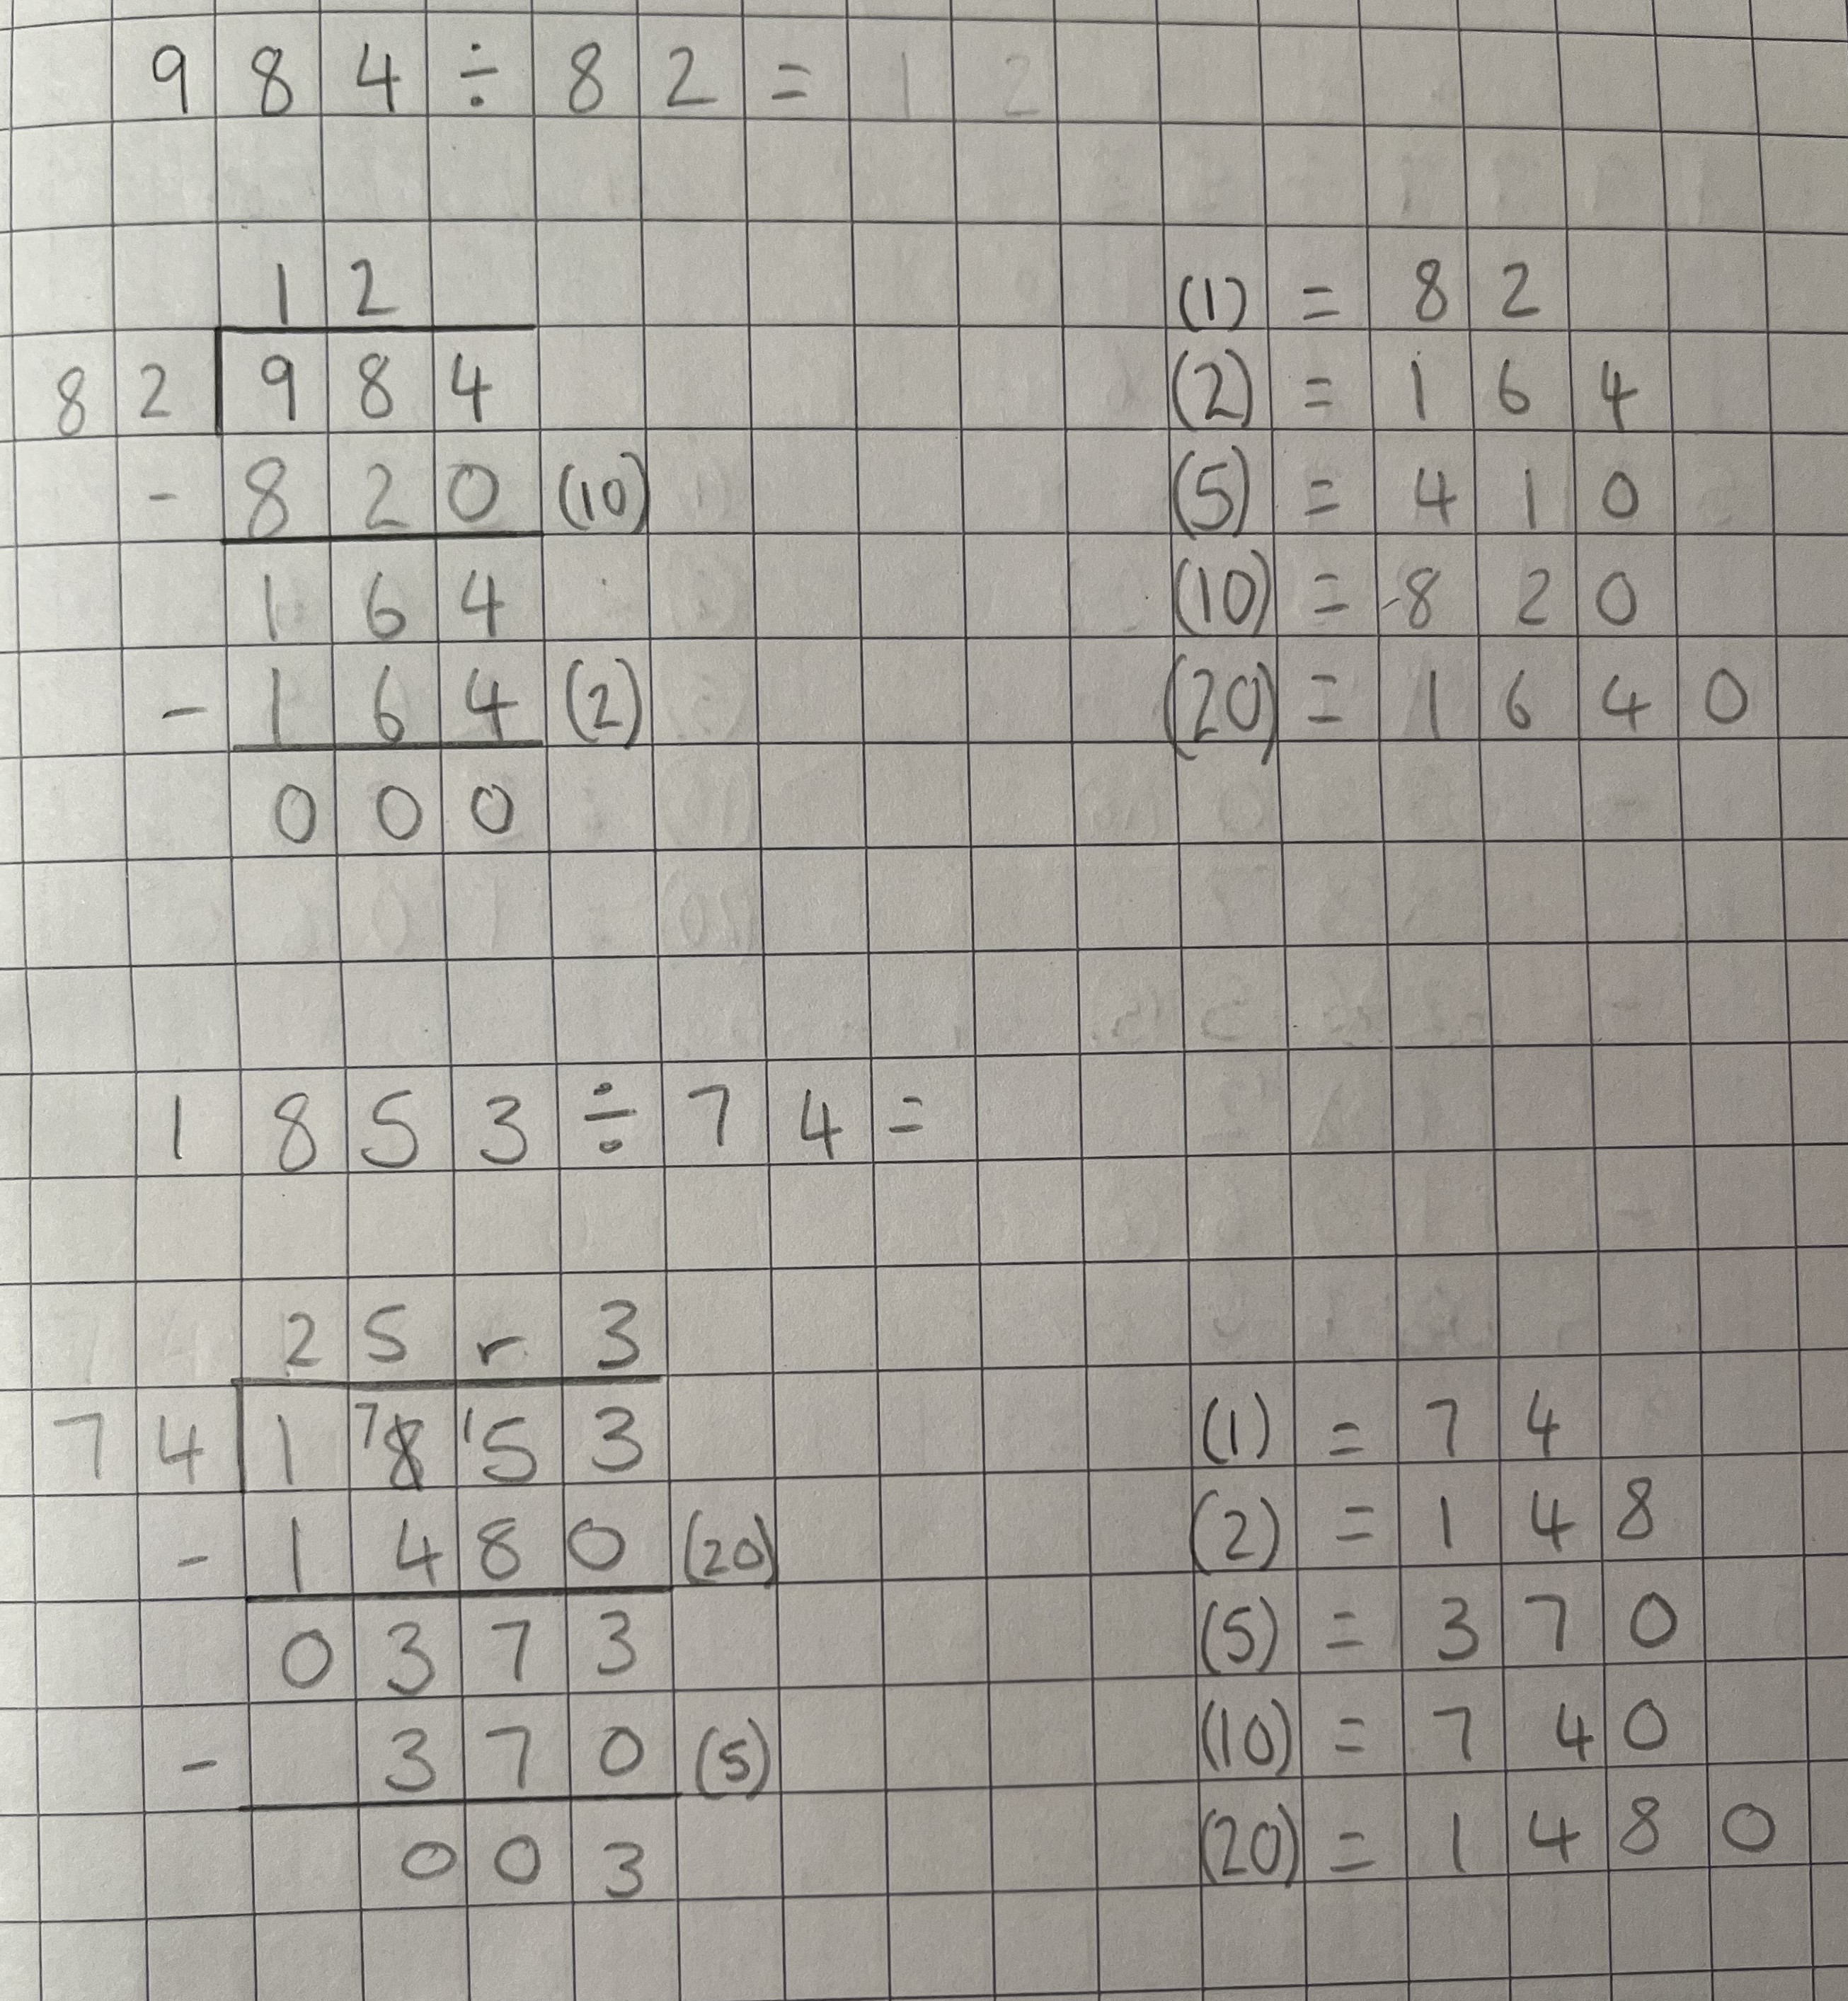 984 ÷ 82 = 12
12
82 984
- 820 (10)
164
- 164 (2)
000
(1) = 82
(2) = 164
(5) = 410
(10) = 820
(20) = 1640
1853 ÷ 74 =
25 r 3
74 1 7 8 1 5 3
- 1480 (20)
0373
- 370 (5)
003
(1) = 74
(2) = 148
(5) = 370
(10) = 740
(20) = 1480